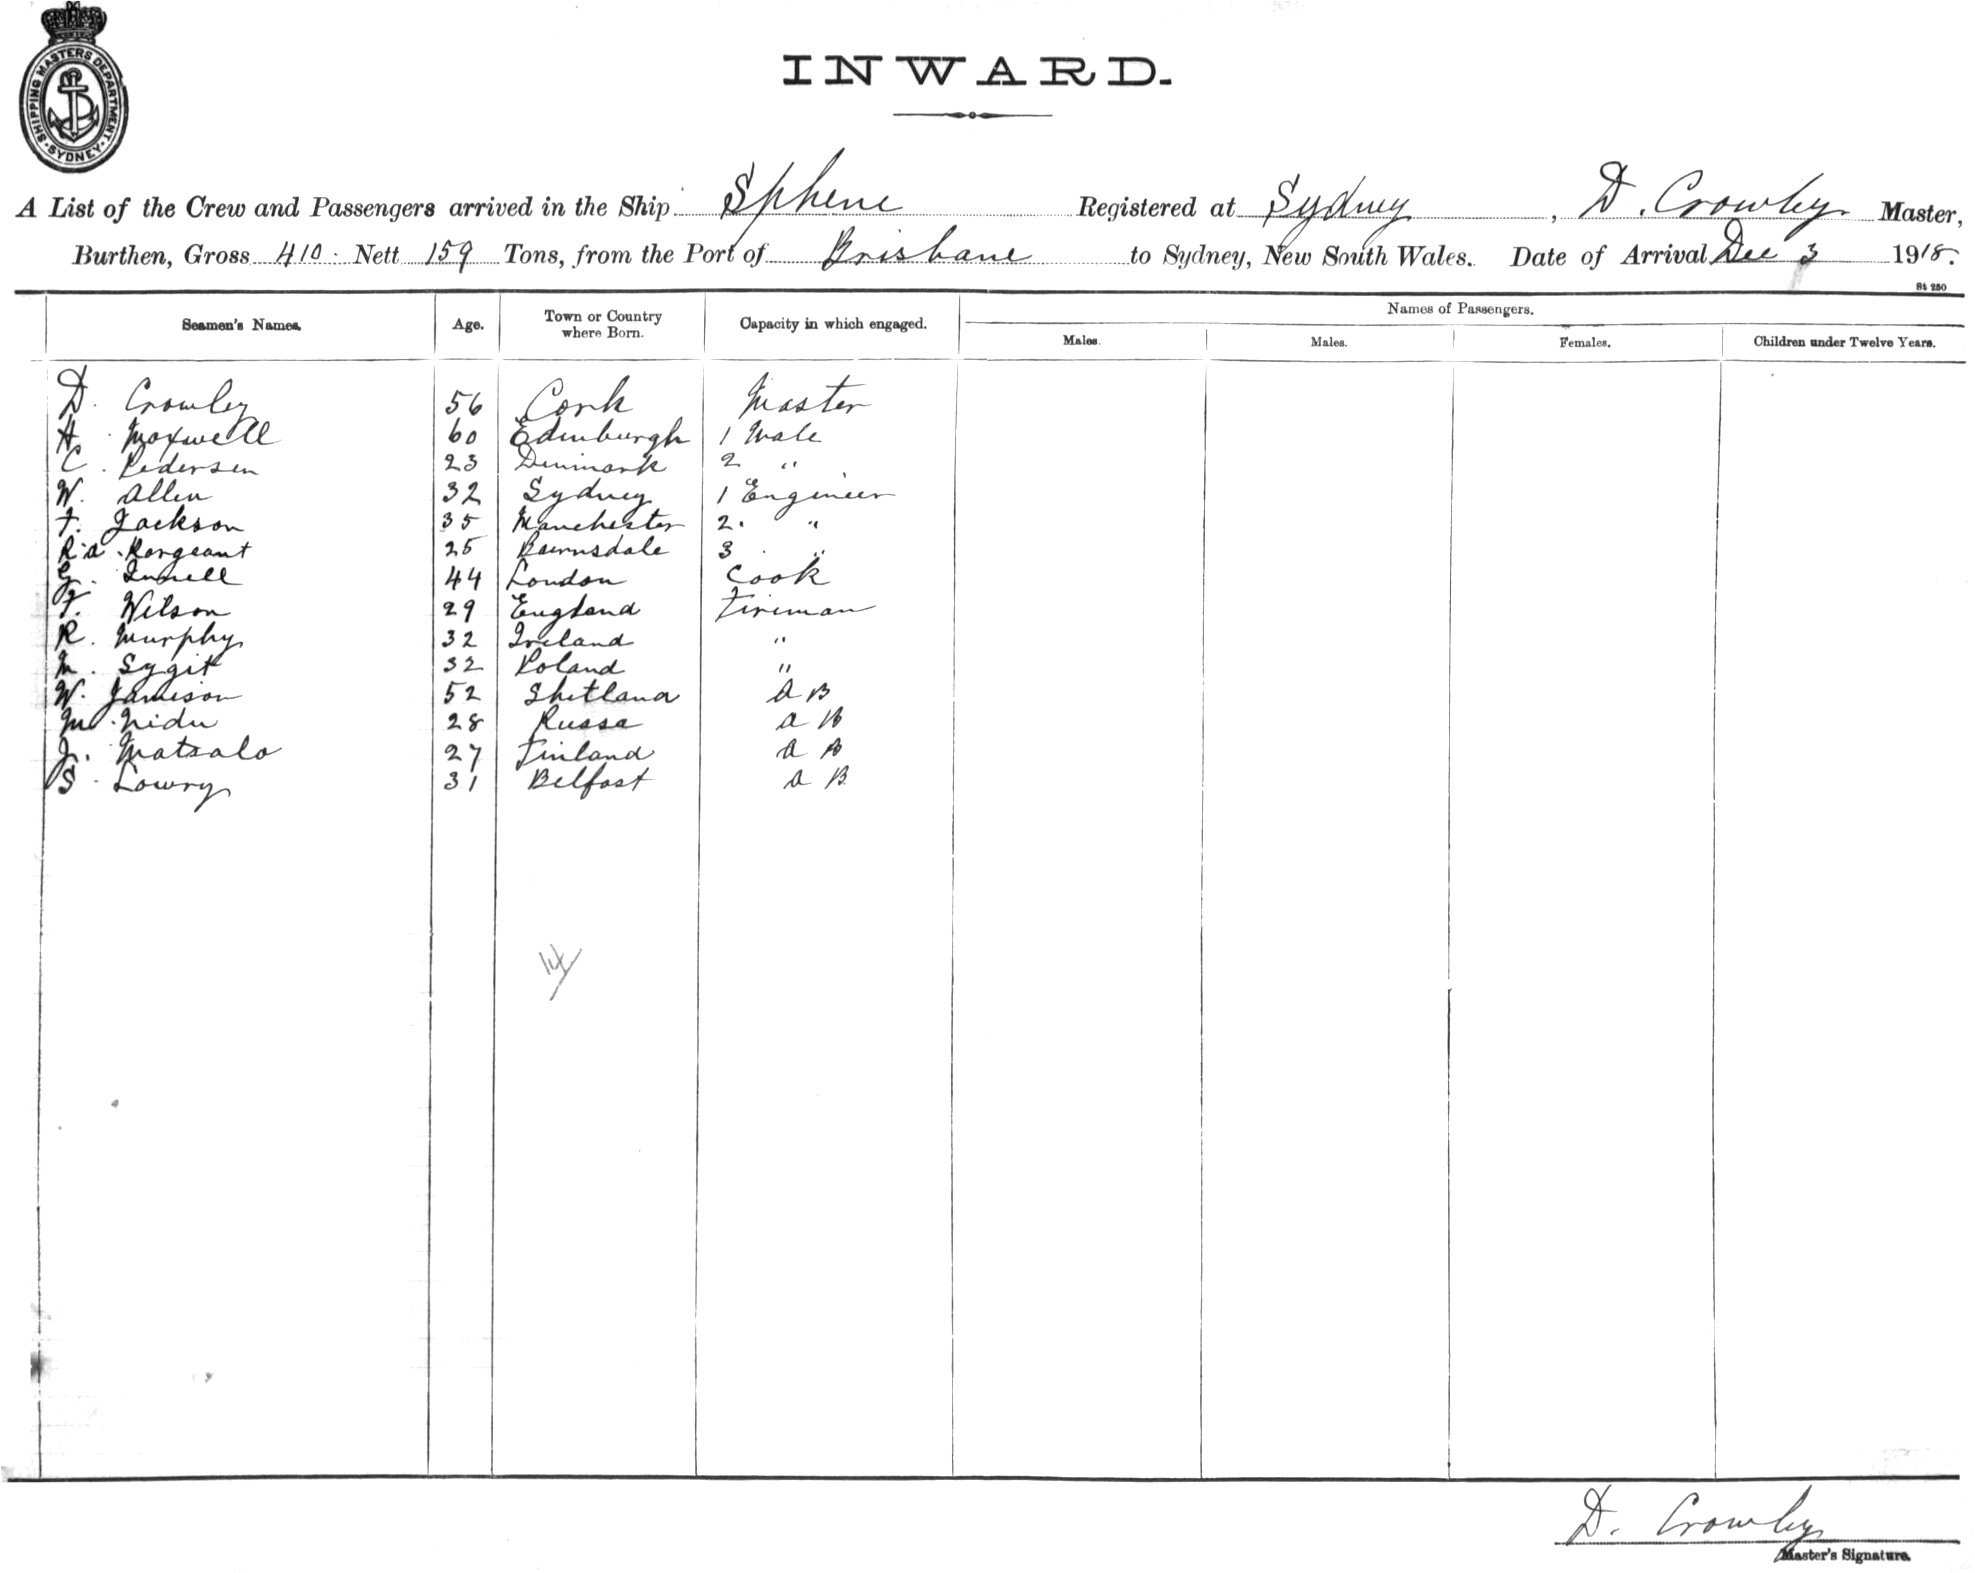 SHIPPING MASTERS DEPARTMENT
SYDNEY
INWARD.
A List of the Crew and Passengers arrived in the Ship Sphene Registered at Sydney, D. Crowley Master,
Burthen, Gross 410 Nett 159 Tons, from the Port of Brisbane to Sydney, New South Wales. Date of Arrival Dec 3 1918.
St 250
Seamen's Names. Age. Town or Country where Born. Capacity in which engaged. Names of Passengers.
Males. Males. Females. Children under Twelve Years.
D. Crowley 56 Cork Master
H. Maxwell 60 Edinburgh 1 Mate
C. Pedersen 23 Denmark 2 "
W. Allen 32 Sydney 1 Engineer
F. Jackson 35 Manchester 2. "
R. a. 25 Bairnsdale 3 "
G. 44 London Cook
F. Wilson 29 England Fireman
R. Murphy 32 Ireland "
M. Sygit 32 Poland "
W. Jamieson 52 Shetland A B
M. Nidu 28 Russa A B
J. Matsalo 27 Finland A B
S. Lowry 31 Belfast A B
14
D. Crowley
Master's Signature.